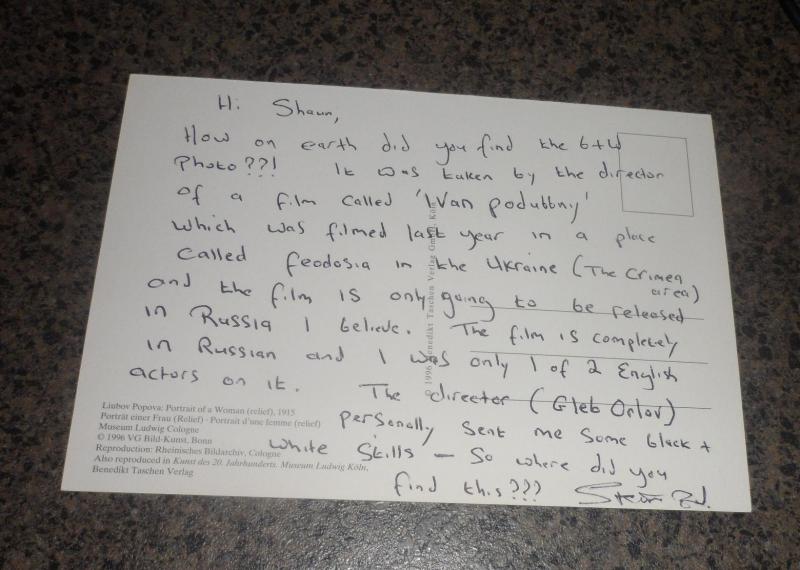 Hi Shaun,
How on earth did you find the b+w
Photo??! It was taken by the director
of a film called 'IVan podubbny'
which was filmed last year in a place
called feodosia in the Ukraine (The Crimea
area)
and the film is only going to be released
in Russia I believe. The film is completely
in Russian and I was only 1 of 2 English
actors on it. The director (Gleb Orlov)
personally sent me some black +
white stills - So where did you
find this???
Liubov Popova: Portrait of a Woman (relief), 1915
Porträt einer Frau (Relief) · Portrait d'une femme (relief)
Museum Ludwig Cologne
© 1996 VG Bild-Kunst, Bonn
Reproduction: Rheinisches Bildarchiv, Cologne
Also reproduced in Kunst des 20. Jahrhunderts. Museum Ludwig Köln,
Benedikt Taschen Verlag
1996 Benedikt Taschen Verlag GmbH, Köln